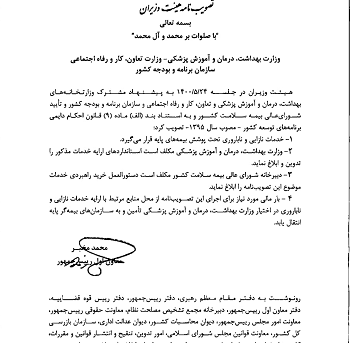 تصویب نامه هیئت وزیران
بسمه تعالی
"با صلوات بر محمد و آل محمد"
وزارت بهداشت، درمان و آموزش پزشکی – وزارت تعاون، کار و رفاه اجتماعی
سازمان برنامه و بودجه کشور
هیئت وزیران در جلسه ۱۴۰۰/۵/۲۴ به پیشنهاد مشترک وزارتخانه‌های
بهداشت، درمان و آموزش پزشکی و تعاون، کار و رفاه اجتماعی و سازمان برنامه و بودجه کشور و تأیید
شورای عالی بیمه سلامت کشور و به استناد بند (الف) ماده (۹) قانون احکام دایمی
برنامه‌های توسعه کشور – مصوب سال ۱۳۹۵– تصویب کرد:
۱- خدمات نازایی و ناباروری تحت پوشش بیمه‌های پایه قرار می‌گیرد.
۲- وزارت بهداشت، درمان و آموزش پزشکی مکلف است استانداردهای ارایه خدمات مذکور را
تدوین و ابلاغ نماید.
۳- دبیرخانه شورای عالی بیمه سلامت کشور مکلف است دستورالعمل خرید راهبردی خدمات
موضوع این تصویب‌نامه را ابلاغ نماید.
۴ – بار مالی مورد نیاز برای اجرای این تصویب‌نامه از محل منابع مرتبط با ارایه خدمات نازایی و
ناباروری در اختیار وزارت بهداشت، درمان و آموزش پزشکی تأمین و به سازمان‌های بیمه‌گر پایه
انتقال یابد.
محمد مخبر
معاون اول رییس جمهور
رونوشت به دفتر مقام معظم رهبری، دفتر رییس‌جمهور، دفتر رییس قوه قضاییه،
دفتر معاون اول رییس‌جمهور، دبیرخانه مجمع تشخیص مصلحت نظام، معاونت حقوقی رییس‌جمهور،
معاونت امور مجلس رییس‌جمهور، دیوان محاسبات کشور، دیوان عدالت اداری، سازمان بازرسی
کل کشور، معاونت قوانین مجلس شورای اسلامی، امور تدوین، تنقیح و انتشار قوانین و مقررات،